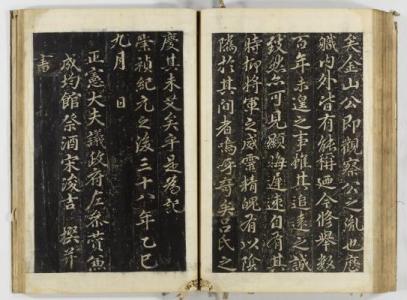 矣金山公即觀察公之胤也歷
職內外皆有能聲廼今修舉數
百年未遑之事惟其追遠之誠
致然亦可見顯晦遲速自有其
時抑將軍之威靈精魄有以陰
隲於其間者嗚呼奇矣呂氏之
慶其未艾矣乎是為記
崇禎紀元之後三十八年乙巳
九月 日
正憲大夫議政府左參贊兼
成均館祭酒宋浚吉撰并
書